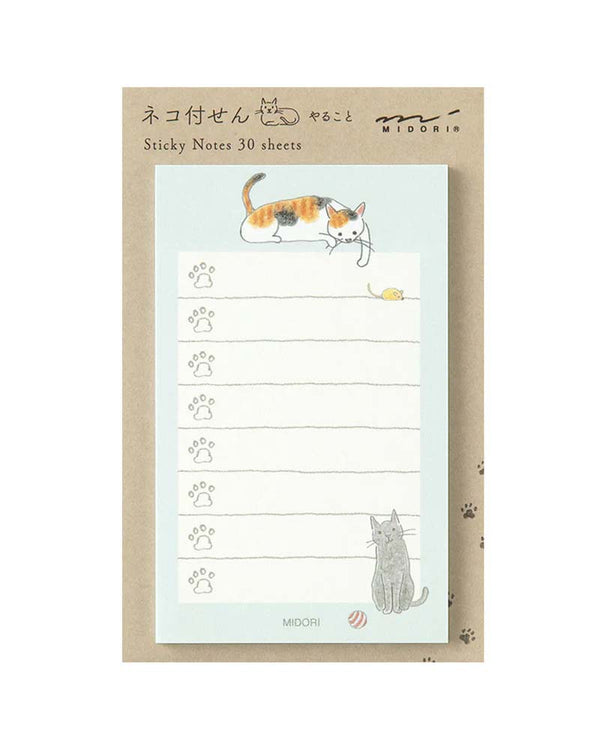 ネコ付せん やること
MIDORI®
Sticky Notes 30 sheets
MIDORI